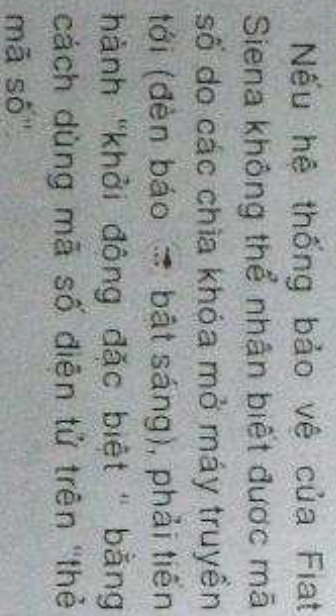 Nếu hệ thống bảo vệ của Fiat
Siena không thể nhận biết được mã
số do các chìa khóa mở máy truyền
tới (đèn báo ... bật sáng), phải tiến
hành "khởi động đặc biệt " bằng
cách dùng mã số điện tử trên "thẻ
mã số"